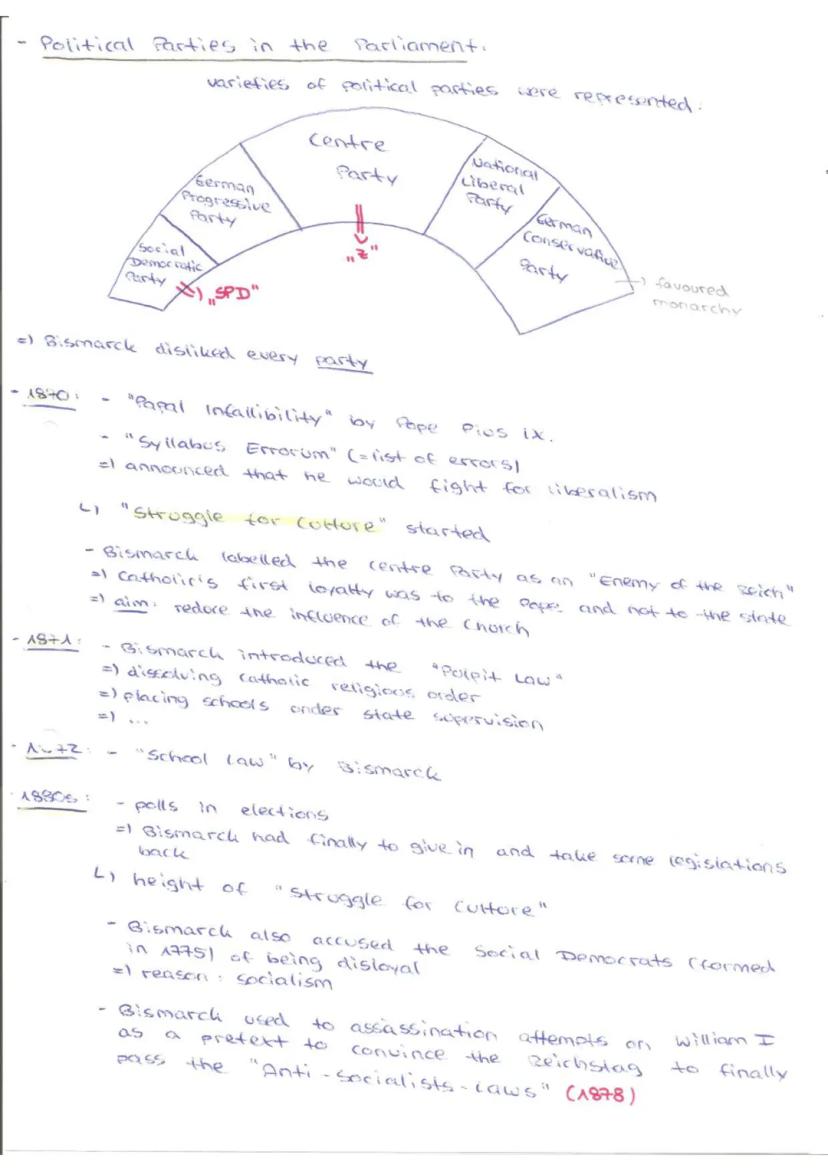 - Political Parties in the Parliament.
varieties of political parties were represented:
Social
Democratic
Party
=) „SPD"
German
Progressive
Party
Centre
Party
„Z"
National
Liberal
Party
German
Conservative
Party
=) favoured
monarchy
=) Bismarck disliked every party
- 1870: - "Papal Infallibility" by Pope Pius IX.
- "Syllabus Errorum" (=list of errors)
=) announced that he would fight for liberalism
↳ "Struggle for Culture" started
- Bismarck labelled the Centre Party as an "Enemy of the Reich"
=) Catholic's first loyalty was to the Pope and not to the state
=) aim: reduce the influence of the Church
- 1871: - Bismarck introduced the "Pulpit Law"
=) dissolving catholic religious order
=) placing schools under state supervision
=) ...
- 1872: - "School Law" by Bismarck
1880s: - polls in elections
=) Bismarck had finally to give in and take some legislations
back
↳ height of "Struggle for Culture"
- Bismarck also accused the Social Democrats (formed
in 1775) of being disloyal
=) reason: socialism
- Bismarck used to assassination attempts on William I
as a pretext to convince the Reichstag to finally
pass the "Anti-Socialists-Laws" (1878)